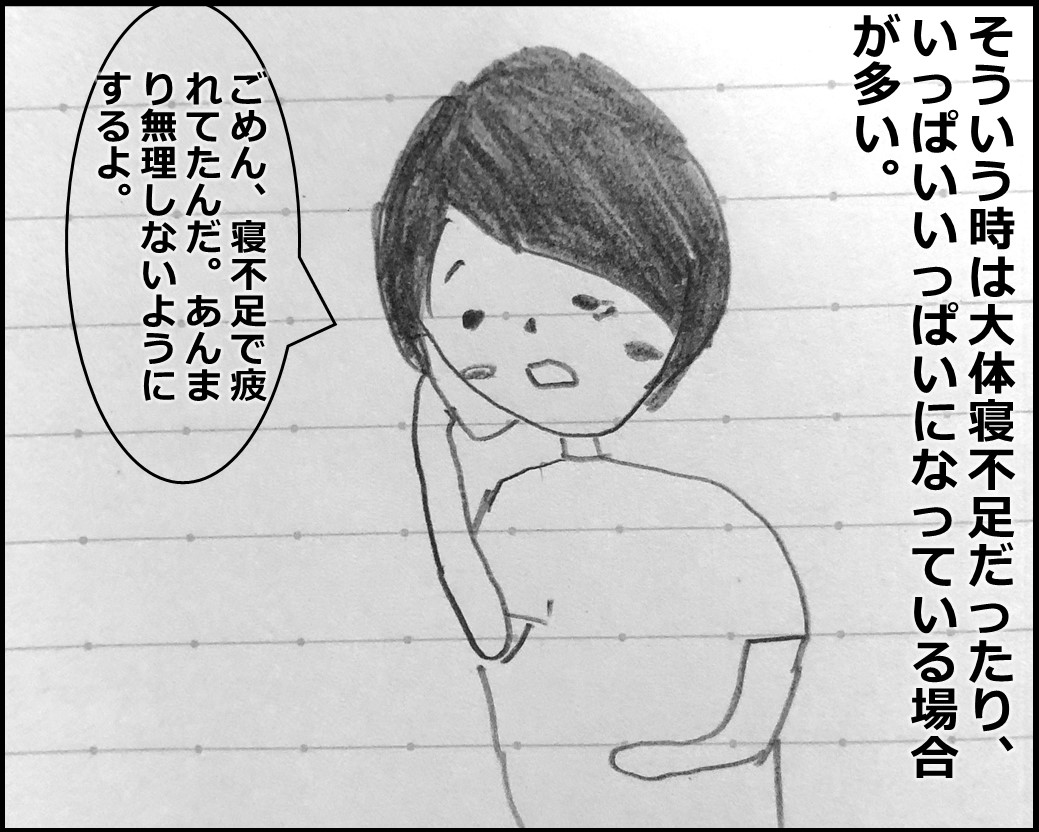 そういう時は大体寝不足だったり、
いっぱいいっぱいになっている場合
が多い。
ごめん、寝不足で疲
れてたんだ。あんま
り無理しないように
するよ。